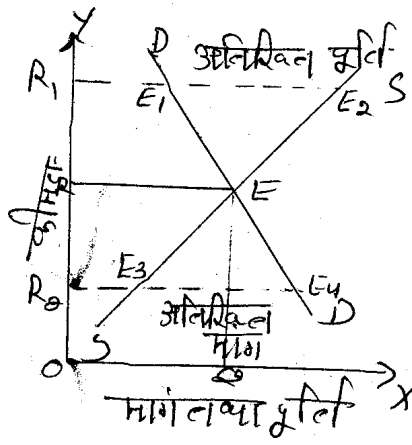 Y
D
अतिरिक्त पूर्ति
R₁
E₁
E₂
S
कीमत
E
E₃
R₂
E₄
अतिरिक्त
मांग
D
S
O
Q
X
मांग तथा पूर्ति